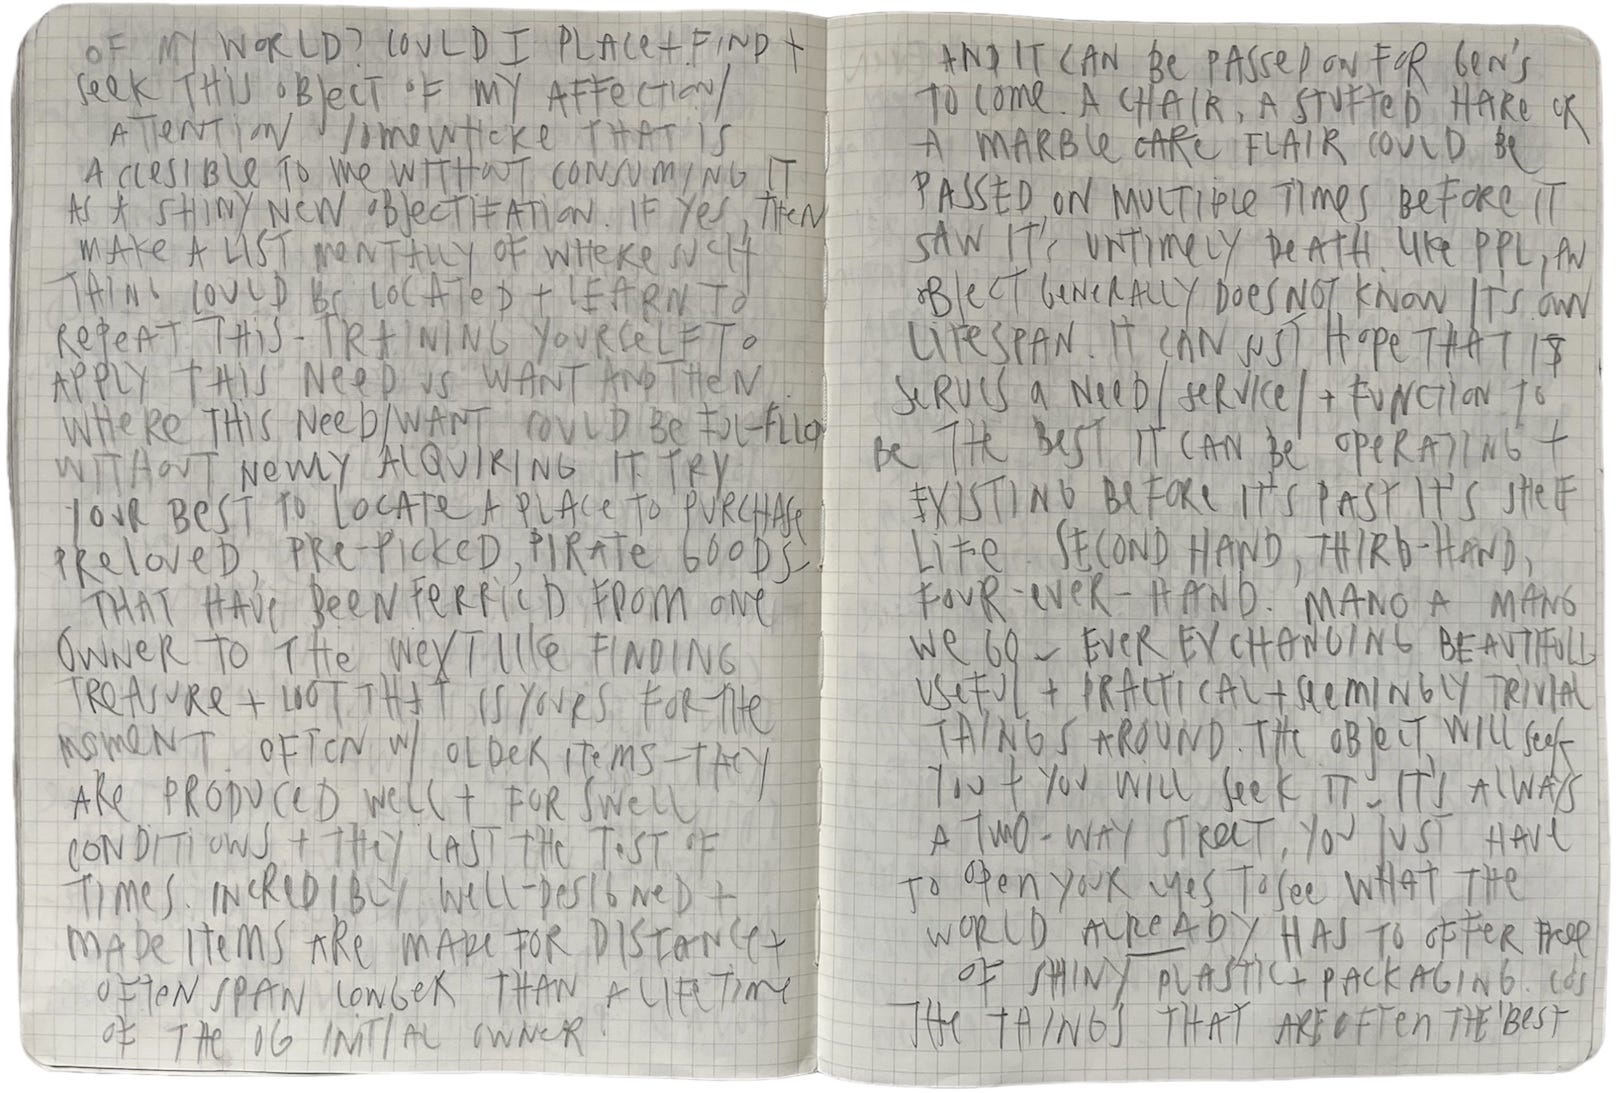 OF MY WORLD? COULD I PLACE + FIND +
SEEK THIS OBJECT OF MY AFFECTION/
ATTENTION SOMEWHERE THAT IS
ACCESIBLE TO ME WITHOUT CONSUMING IT
AS A SHINY NEW OBJECTIFATION. IF YES, THEN
MAKE A LIST MENTALLY OF WHERE SUCH
THING COULD BE LOCATED + LEARN TO
REPEAT THIS - TRAINING YOURSELF TO
APPLY THIS NEED VS WANT AND THEN
WHERE THIS NEED/WANT COULD BE FUL-FILLD
WITHOUT NEWLY ACQUIRING IT. TRY
YOUR BEST TO LOCATE A PLACE TO PURCHASE
PRELOVED, PRE-PICKED, PIRATE GOODS -
THAT HAVE BEEN FERRIED FROM ONE
OWNER TO THE NEXT LIKE FINDING
TREASURE + LOOT THAT IS YOURS FOR THE
MOMENT. OFTEN W/ OLDER ITEMS - THEY
ARE PRODUCED WELL + FOR SWELL
CONDITIONS + THEY LAST THE TEST OF
TIMES. INCREDIBLY WELL-DESIGNED +
MADE ITEMS ARE MADE FOR DISTANCE +
OFTEN SPAN LONGER THAN A LIFETIME
OF THE OG INITIAL OWNER.
AND IT CAN BE PASSED ON FOR GEN'S
TO COME. A CHAIR, A STUFFED HARE OR
A MARBLE CAKE FLAIR COULD BE
PASSED ON MULTIPLE TIMES BEFORE IT
SAW IT'S UNTIMELY DEATH. LIKE PPL, AN
OBJECT GENERALLY DOES NOT KNOW IT'S OWN
LIFESPAN. IT CAN JUST HOPE THAT IT
SERVES A NEED/SERVICE/ + FUNCTION TO
BE THE BEST IT CAN BE OPERATING +
EXISTING BEFORE IT'S PAST IT'S SHELF
LIFE. SECOND HAND, THIRD-HAND,
FOUR-EVER-HAND. MANO A MANO
WE GO - EVER EXCHANGING BEAUTIFULL
USEFUL + PRACTICAL + SEEMINGLY TRIVIAL
THINGS AROUND. THE OBJECT WILL SEEK
YOU + YOU WILL SEEK IT - IT'S ALWAYS
A TWO-WAY STREET, YOU JUST HAVE
TO OPEN YOUR EYES TO SEE WHAT THE
WORLD ALREADY HAS TO OFFER FREE
OF SHINY PLASTIC + PACKAGING. COS
THE THINGS THAT ARE OFTEN THE BEST